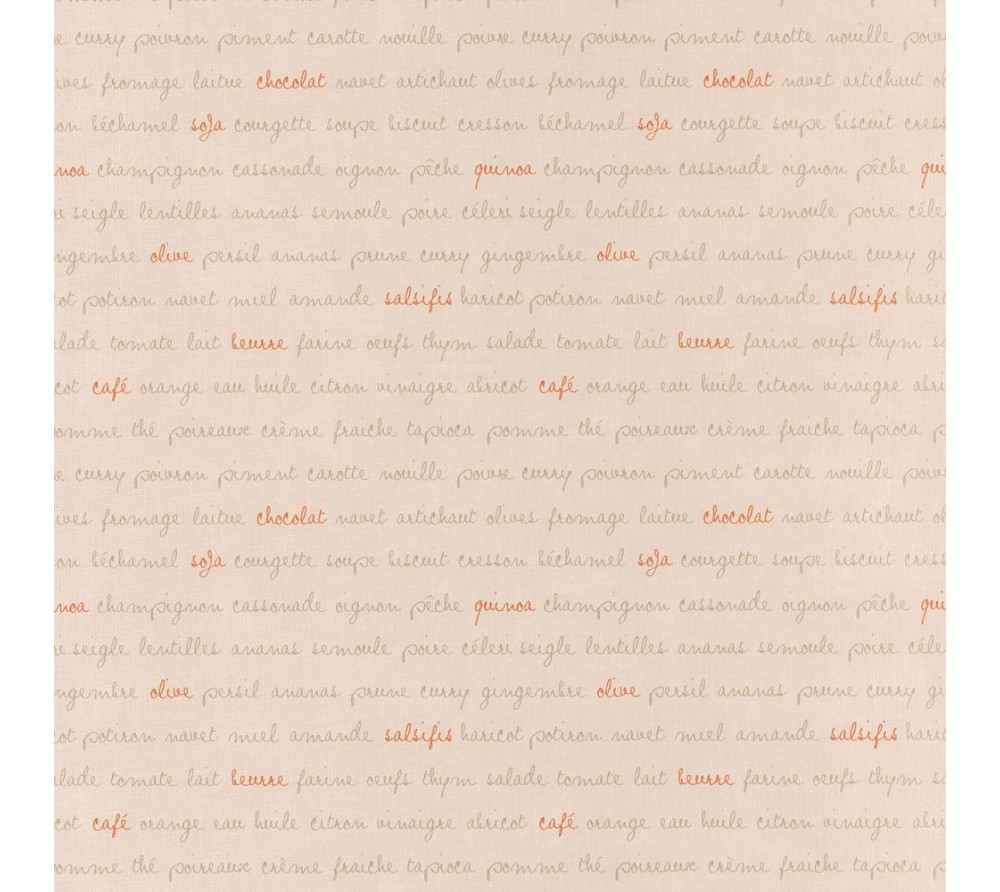 e curry poivron piment carotte nouille poivre curry poivron piment carotte nouille poiv
ives fromage laitue chocolat navet artichaut olives fromage laitue chocolat navet artichaut ol
on béchamel soja courgette soupe biscuit cresson béchamel soja courgette soupe biscuit cress
noa champignon cassonade oignon pêche quinoa champignon cassonade oignon pêche qui
ri seigle lentilles ananas semoule poire céleri seigle lentilles ananas semoule poire céle
ngembre olive persil ananas prune curry gingembre olive persil ananas prune curry gi
cot potiron navet miel amande salsifis haricot potiron navet miel amande salsifis haric
alade tomate lait beurre farine oeufs thym salade tomate lait beurre farine oeufs thym sa
cot café orange eau huile citron vinaigre abricot café orange eau huile citron vinaigre abri
omme thé poireaux crème fraiche tapioca pomme thé poireaux crème fraiche tapioca p
e curry poivron piment carotte nouille poivre curry poivron piment carotte nouille poiv
ives fromage laitue chocolat navet artichaut olives fromage laitue chocolat navet artichaut ol
on béchamel soja courgette soupe biscuit cresson béchamel soja courgette soupe biscuit cress
noa champignon cassonade oignon pêche quinoa champignon cassonade oignon pêche qui
ri seigle lentilles ananas semoule poire céleri seigle lentilles ananas semoule poire céle
ngembre olive persil ananas prune curry gingembre olive persil ananas prune curry gi
cot potiron navet miel amande salsifis haricot potiron navet miel amande salsifis haric
alade tomate lait beurre farine oeufs thym salade tomate lait beurre farine oeufs thym sa
cot café orange eau huile citron vinaigre abricot café orange eau huile citron vinaigre abri
omme thé poireaux crème fraiche tapioca pomme thé poireaux crème fraiche tapioca p